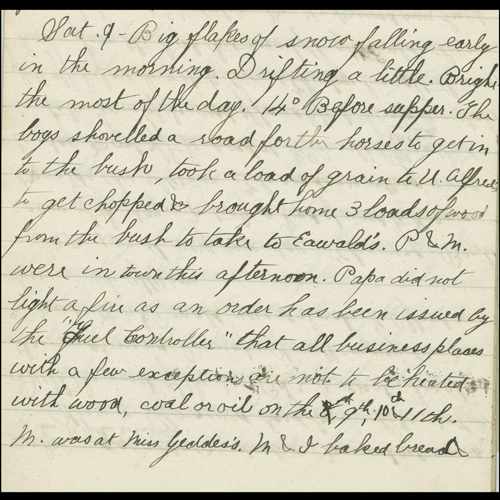 Sat. 9 - Big flakes of snow falling early
in the morning. Drifting a little. Bright
the most of the day. 14° Before supper. The
boys shovelled a road for the horses to get in
to the bush, took a load of grain to U. Alfred
to get chopped & brought home 3 loads of wood
from the bush to take to Eawald's. P & M.
were in town this afternoon. Papa did not
light a fire as an order has been issued by
the "Fuel Controller" that all business places
with a few exceptions are not to be heated
with wood, coal or oil on the 9th, 10 & 11th.
M. was at Miss Geddes's. M & I baked bread